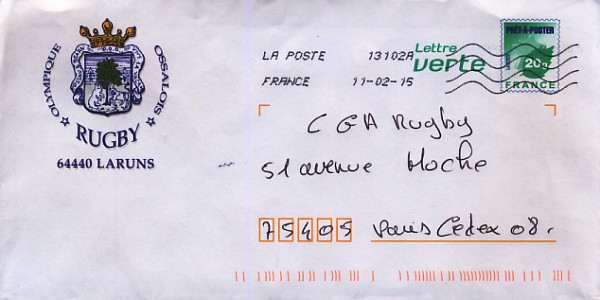 OLYMPIQUE OSSALOIS
RUGBY
64440 LARUNS
LA POSTE 13102A
FRANCE 11-02-15
Lettre
verte
PRÊT-À-POSTER
20g
FRANCE
CGA Rugby
51 avenue Hoche
75405 Paris Cedex 08.